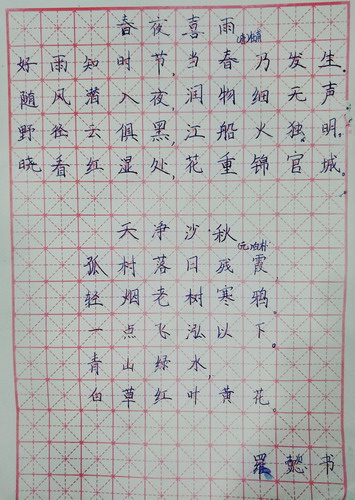 春夜喜雨
(唐)杜甫
好雨知时节,当春乃发生.
随风潜入夜,润物细无声
野径云俱黑,江船火独明.
晓看红湿处,花重锦官城。
天净沙·秋
(元)白朴
孤村落日残霞
轻烟老树寒鸦。
一点飞泓以下。
青山绿水,
白草红叶黄花。
罗懿书